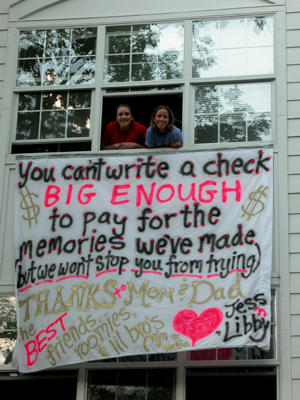 You can't write a check
$ BIG ENOUGH $
to pay for the
memories we've made
(but we won't stop you from trying)
THANKS to Mom & Dad
the BEST friends,
roomies,
& lil bro's
Jess &
Libby